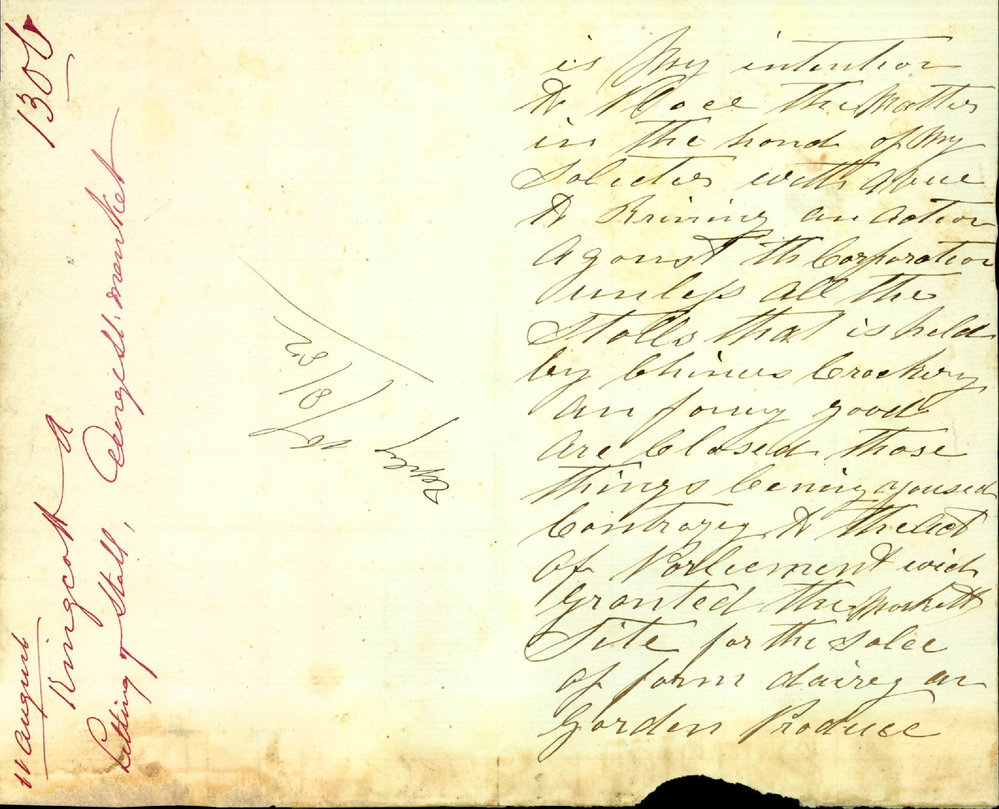 11 August 1306
Kingcott A
Letting of Stall, George St. market
16/8/82
Reply
is My intention
to Place the Matter
in the hand of My
Solicter with a vue
to Brining an action
Agonst th Corporation
unless all the
Stolls that is held
by Chines Crockery
an foncy good
are Closed those
things bening yoused
Controrey to the act
of Porliement wich
Gronted the Morkett
Site for the Salee
of form dairey an
Gorden Produce